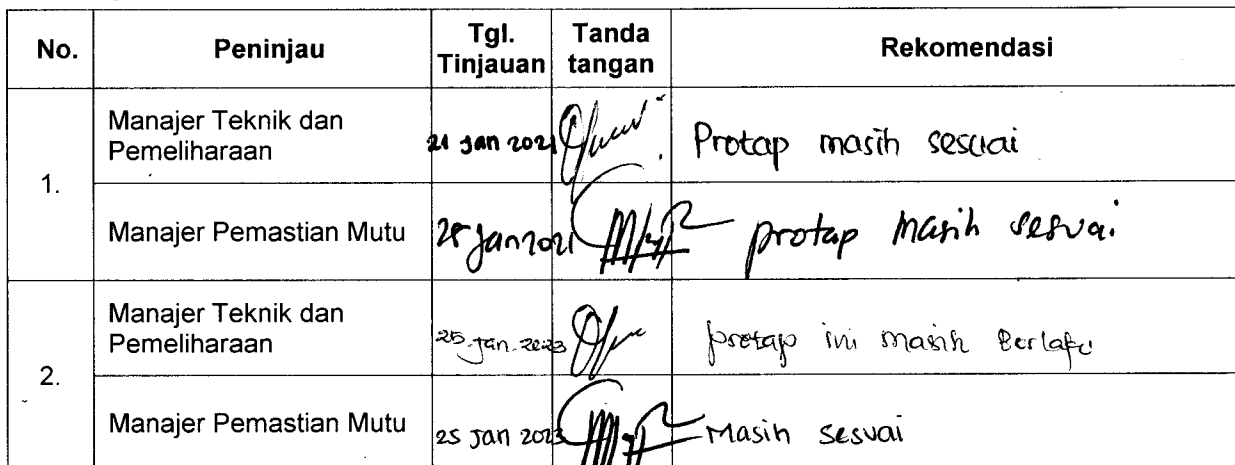 No. Peninjau Tgl. Tinjauan Tanda tangan Rekomendasi
1.
Manajer Teknik dan Pemeliharaan 21 Jan 2021 Protap masih sesuai
Manajer Pemastian Mutu Jan 2021 protap masih sesuai
2.
Manajer Teknik dan Pemeliharaan 25 Jan 2023 protap ini masih berlaku
Manajer Pemastian Mutu 25 Jan 2023 Masih sesuai